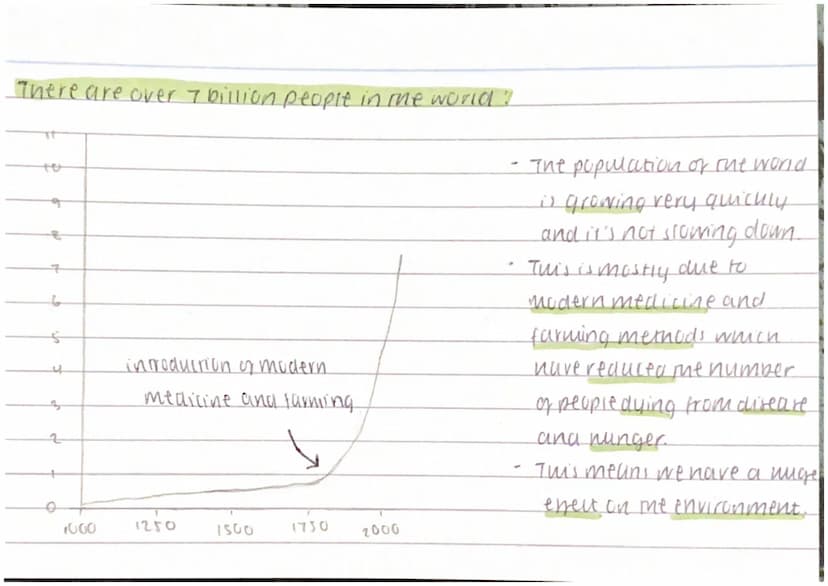 There are over 7 billion people in the world!
11
10
9
8
7
6
5
4
3
2
1
0
1000 1250 1500 1750 2000
introduction of modern
medicine and farming
- The population of the world
is growing very quickly
and it's not slowing down.
- This is mostly due to
modern medicine and
farming methods which
have reduced the number
of people dying from disease
and hunger.
- This means we have a huge
effect on the environment.